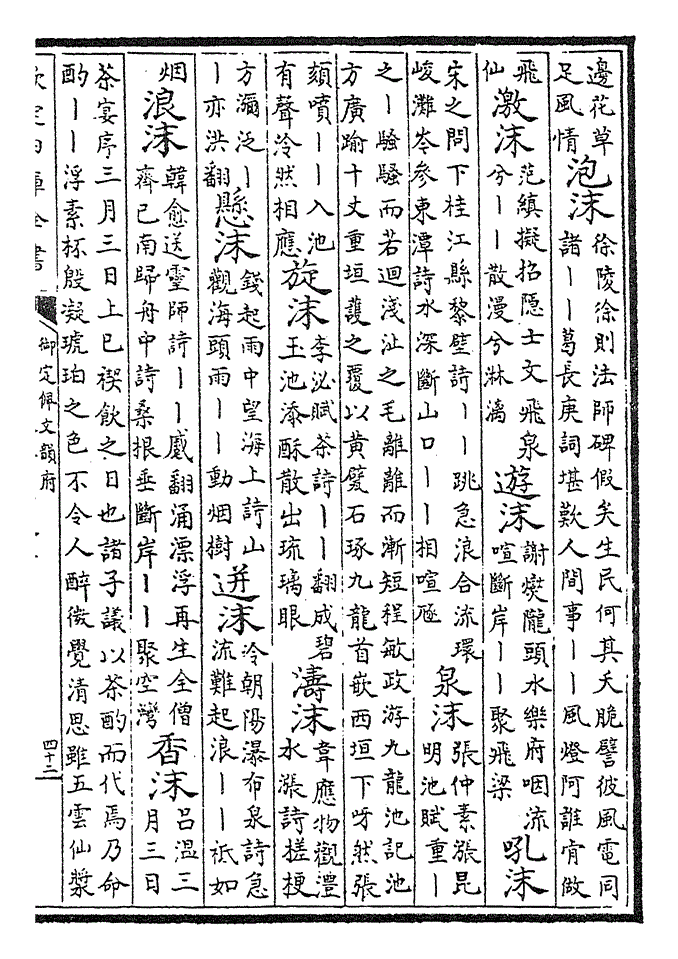 邊花草足風情泡沫徐陵徐則法師碑假矣生民何其夭脆譬彼風電同諸丨丨葛長庚詞堪歎人間事丨丨風燈阿誰肯做
飛仙激沫范縝擬招隱士文飛泉兮丨丨散漫兮淋漓遊沫謝燮隴頭水樂府咽流喧斷岸丨丨聚飛梁吼沫
宋之問下桂江縣黎壁詩丨丨跳急浪合流環峻灘岑參東潭詩水深斷山口丨丨相喧豗泉沫張仲素漲昆明池賦重丨
之丨騷騷而若迴淺沚之毛離離而漸短程敏政游九龍池記池方廣踰十丈重垣護之覆以黄甓石琢九龍首嵌西垣下呀然張
頦噴丨丨入池有聲泠然相應旋沫李泌賦茶詩丨丨翻成碧玉池添酥散出琉璃眼濤沫韋應物觀灃水漲詩槎梗
方瀰泛丨丨亦洪翻懸沫錢起雨中望海上詩山觀海頭雨丨丨動烟樹迸沫冷朝陽瀑布泉詩急流難起浪丨丨祗如
烟浪沫韓愈送靈師詩丨丨蹙翻涌漂浮再生全僧齊己南歸舟中詩桑根垂斷岸丨丨聚空灣香沫呂溫三月三日
茶宴序三月三日上巳禊飲之日也諸子議以茶酌而代焉乃命酌丨丨浮素杯殷凝琥珀之色不令人醉微覺清思雖五雲仙漿
欽定四庫全書 御定佩文韻府 四十二